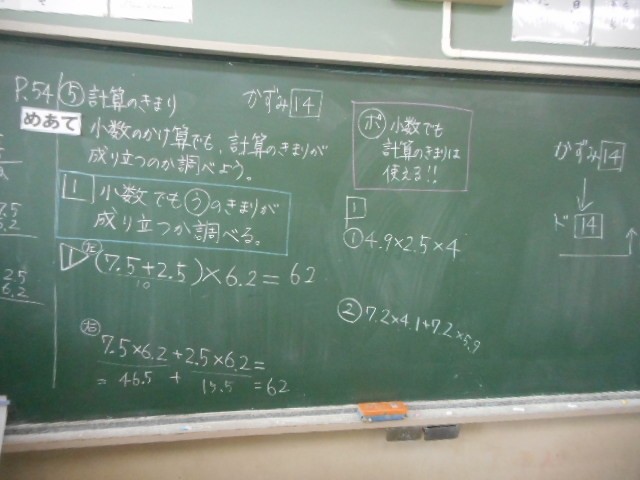 P.54 ⑤ 計算のきまり かずみ 14
めあて 小数のかけ算でも、計算のきまりが
成り立つのか調べよう。
1 小数でも③のきまりが
成り立つか調べる。
1 左 (7.5+2.5)×6.2=62
10
右
7.5×6.2+2.5×6.2=
=46.5+15.5=62
ポ 小数でも
計算のきまりは
使える!!
1
① 4.9×2.5×4
② 7.2×4.1+7.2×5.9
かずみ 14
ド 14
7.5
6.2
25
6.2